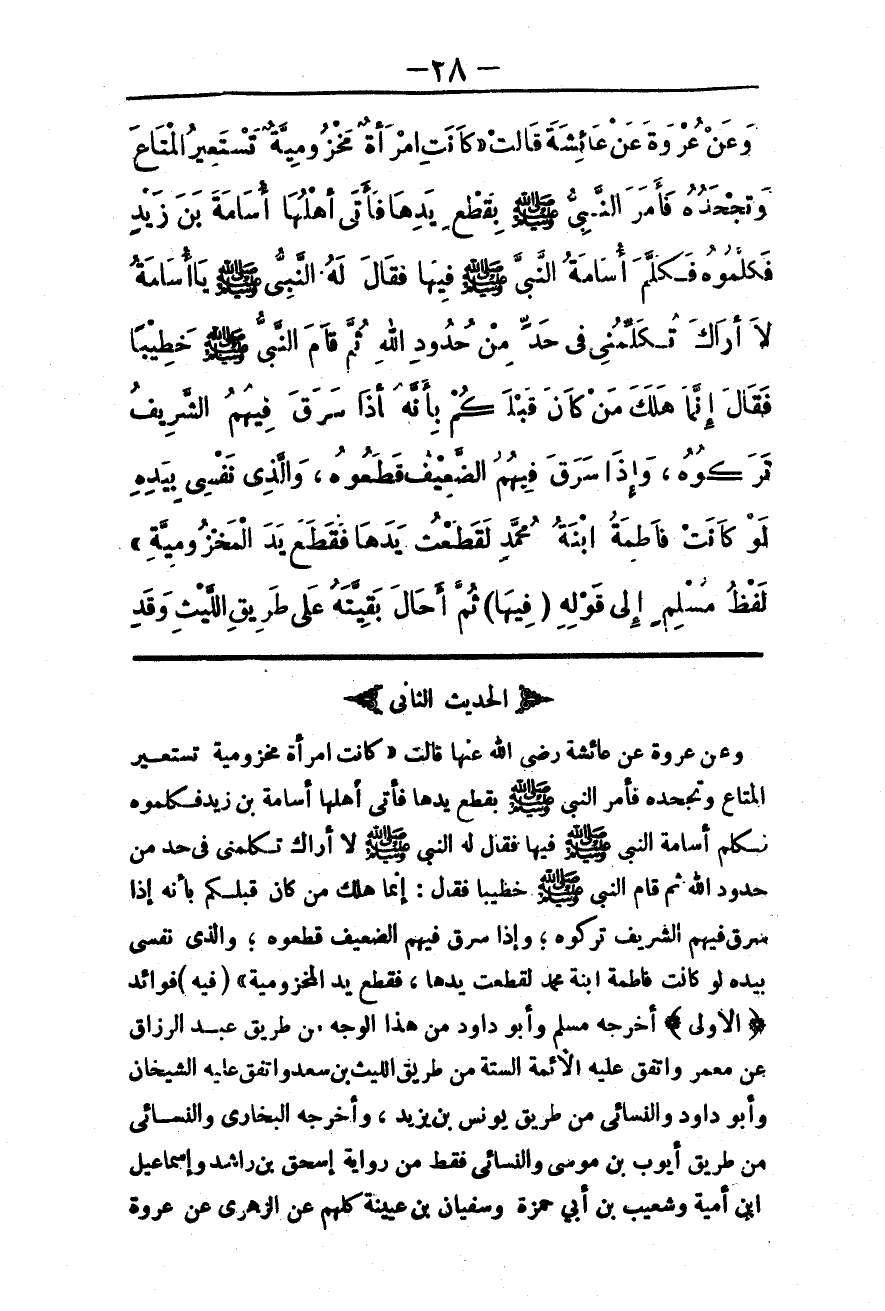 — ٢٨ —
وَعَنْ عُرْوَةَ عَنْ عَائِشَةَ قَالَتْ «كَانَتِ امْرَأَةٌ مَخْزُومِيَّةٌ تَسْتَعِيرُ الْمَتَاعَ
وَتَجْحَدُهُ فَأَمَرَ النَّبِيُّ ﷺ بِقَطْعِ يَدِهَا فَأَتَى أَهْلُهَا أُسَامَةَ بْنَ زَيْدٍ
فَكَلَّمُوهُ فَكَلَّمَ أُسَامَةُ النَّبِيَّ ﷺ فِيهَا فَقَالَ لَهُ النَّبِيُّ ﷺ يَاأُسَامَةُ
لاَ أَرَاكَ تُكَلِّمُنِى فِى حَدٍّ مِنْ حُدُودِ اللهِ ثُمَّ قَامَ النَّبِيُّ ﷺ خَطِيبًا
فَقَالَ إِنَّمَا هَلَكَ مَنْ كَانَ قَبْلَكُمْ بِأَنَّهُ إِذَا سَرَقَ فِيهِمُ الشَّرِيفُ
تَرَكُوُهُ ، وَإِذَا سَرَقَ فِيهِمُ الضَّعِيْفُ قَطَعُوهُ ، وَالَّذِى نَفْسِى بِيَدِهِ
لَوْ كَانَتْ فَاطِمَةُ ابْنَةُ مُحَمَّدٍ لَقَطَعْتُ يَدَهَا فَقَطَعَ يَدَ الْمَخْزُومِيَّةِ »
لَفْظُ مُسْلِمٍ إِلى قَوْلِهِ (فِيهَا) ثُمَّ أَحَالَ بَقِيَّتَهُ عَلَى طَرِيقِ اللَّيْثِ وَقَدِ
الحديث الثانى
وعن عروة عن عائشة رضى الله عنها قالت « كانت امرأة مخزومية تستعير
المتاع وتجحده فأمر النبى ﷺ بقطع يدها فأتى أهلها أسامة بن زيد فكلموه
فكلم أسامة النبى ﷺ فيها فقال له النبى ﷺ لا أراك تكلمنى فى حد من
حدود الله ثم قام النبى ﷺ خطيبا فقال : إنما هلك من كان قبلكم بأنه إذا
سرق فيهم الشريف تركوه ؛ وإذا سرق فيهم الضعيف قطعوه ؛ والذى نفسى
بيده لو كانت فاطمة ابنة محمد لقطعت يدها ، فقطع يد المخزومية» (فيه) فوائد
﴿ الاولى ﴾ أخرجه مسلم وأبو داود من هذا الوجه من طريق عبد الرزاق
عن معمر واتفق عليه الأئمة الستة من طريق الليث بن سعد واتفق عليه الشيخان
وأبو داود والنسائى من طريق يونس بن يزيد ، وأخرجه البخارى والنسائى
من طريق أيوب بن موسى والنسائى فقط من رواية إسحق بن راشد وإسماعيل
ابن أمية وشعيب بن أبي حمزة وسفيان بن عيينة كلهم عن الزهرى عن عروة